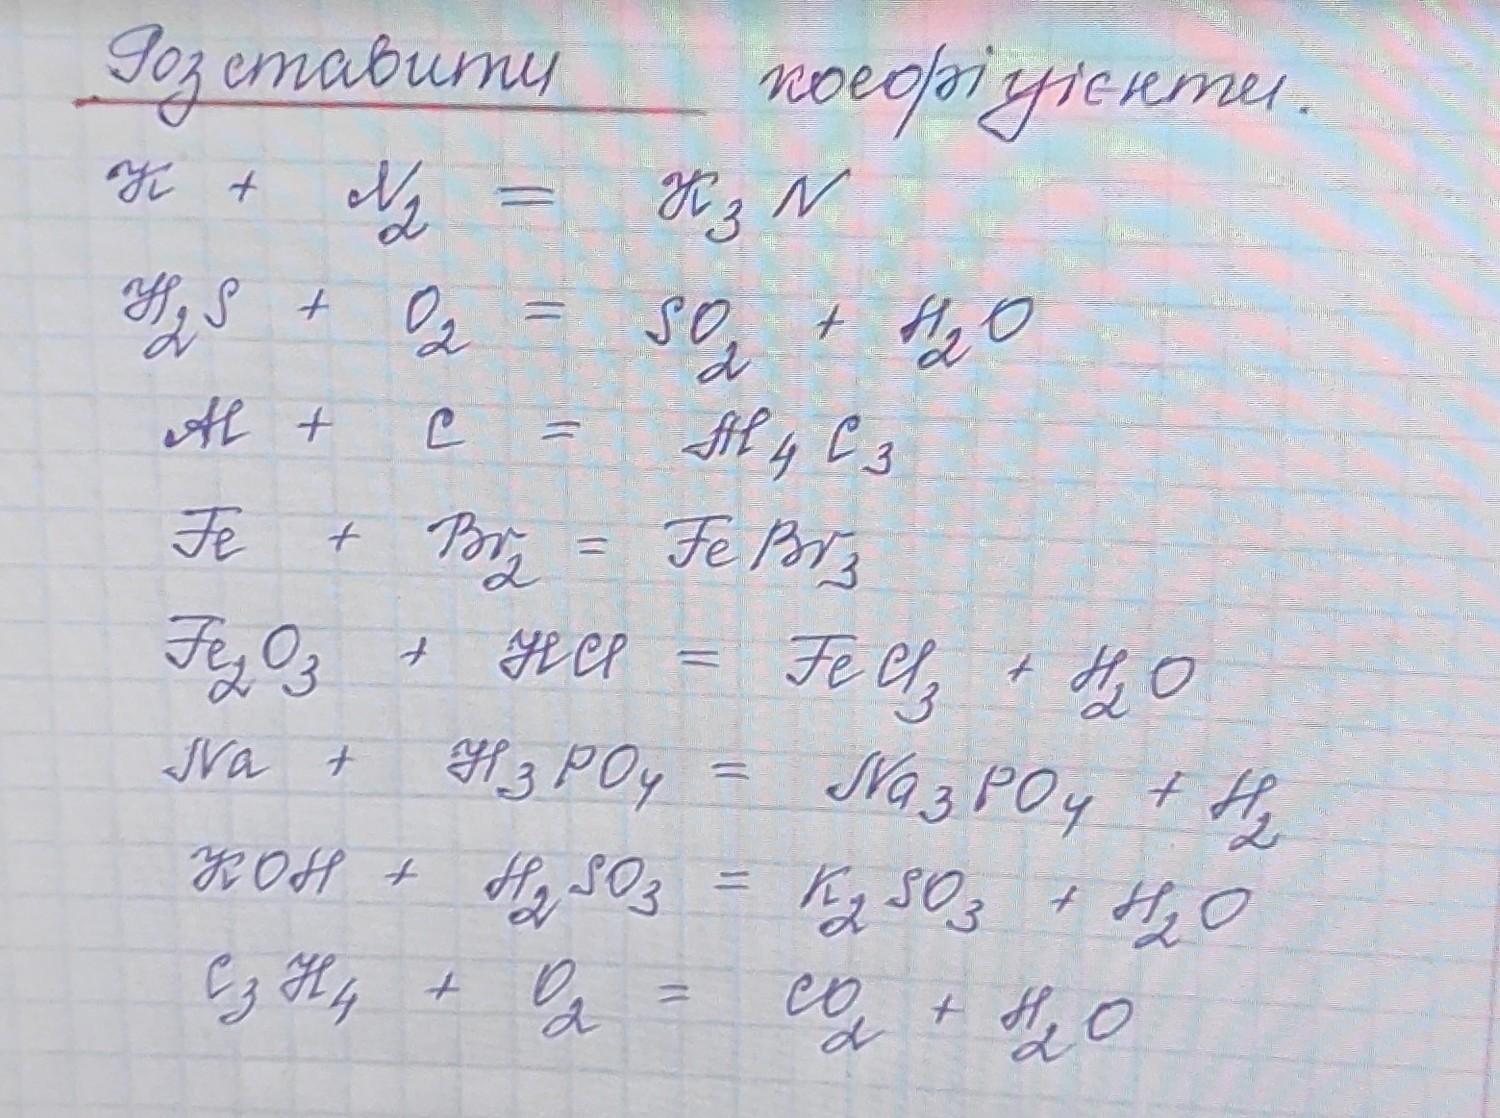 Розставити коефіцієнти.
K + N₂ = K₃N
H₂S + O₂ = SO₂ + H₂O
Al + C = Al₄C₃
Fe + Br₂ = FeBr₃
Fe₂O₃ + HCl = FeCl₃ + H₂O
Na + H₃PO₄ = Na₃PO₄ + H₂
KOH + H₂SO₃ = K₂SO₃ + H₂O
C₃H₄ + O₂ = CO₂ + H₂O